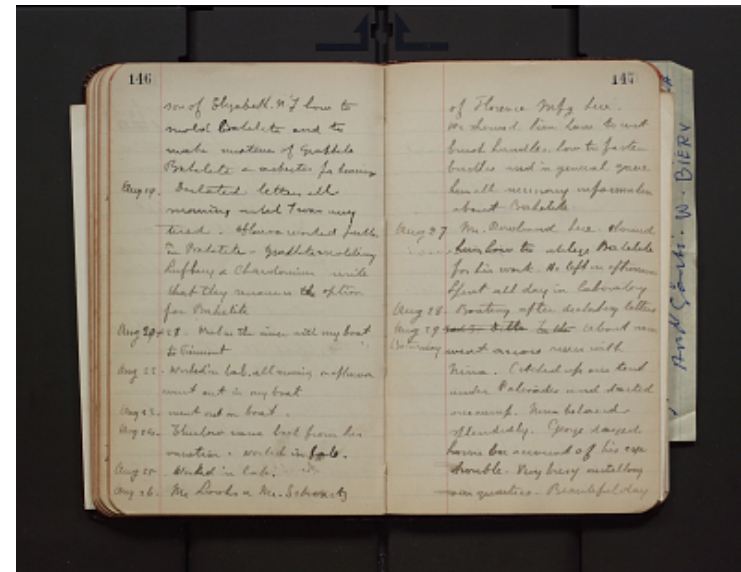 146
son of Elizabeth. N J how to
mold Bakelite and to
make mixtures of Graphite
Bakelite & asbestos for bearings
Aug 19. Dictated letters all
morning until I was very
tired.
worked
in Bakelite - Graphite molding
& Chardonnier write
that they renounce the option
for Bakelite
Aug 20 + 21 - the river with my boat
to Piermont
Aug 22 - Worked in lab. all morning in afternoon
went out in my boat
Aug 23. went out in boat.
Aug 24. Thurlow came back from his
vacation. worked in lab.
Aug 25. Worked in lab.
Aug 26. Mr. & Mr. Schwartz
147
of Florence Mfg here.
We showed him how to
brush handles, how to fasten
bristles and in general gave
him all necessary information
about Bakelite.
Aug 27 Mr. here. showed
him how to Bakelite
for his work. He left in afternoon
Spent all day in laboratory
Aug 28. Boating after dictating letters
Aug 29 about noon
Saturday went across river with
Nina. up our tent
under Palisades and started
camp. Nina behaved
splendidly. George stayed
home on account of his eye
trouble. Very busy installing
our quarters. Beautiful day
And W. BIERY